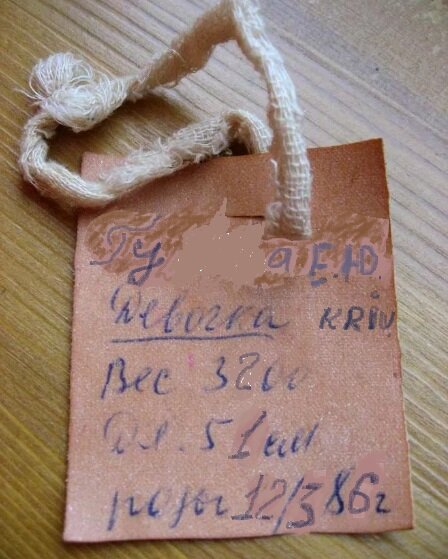 а Е.Ю.
Девочка KRIV
Вес 3200
Дл. 51 см
роды 12/3 86г